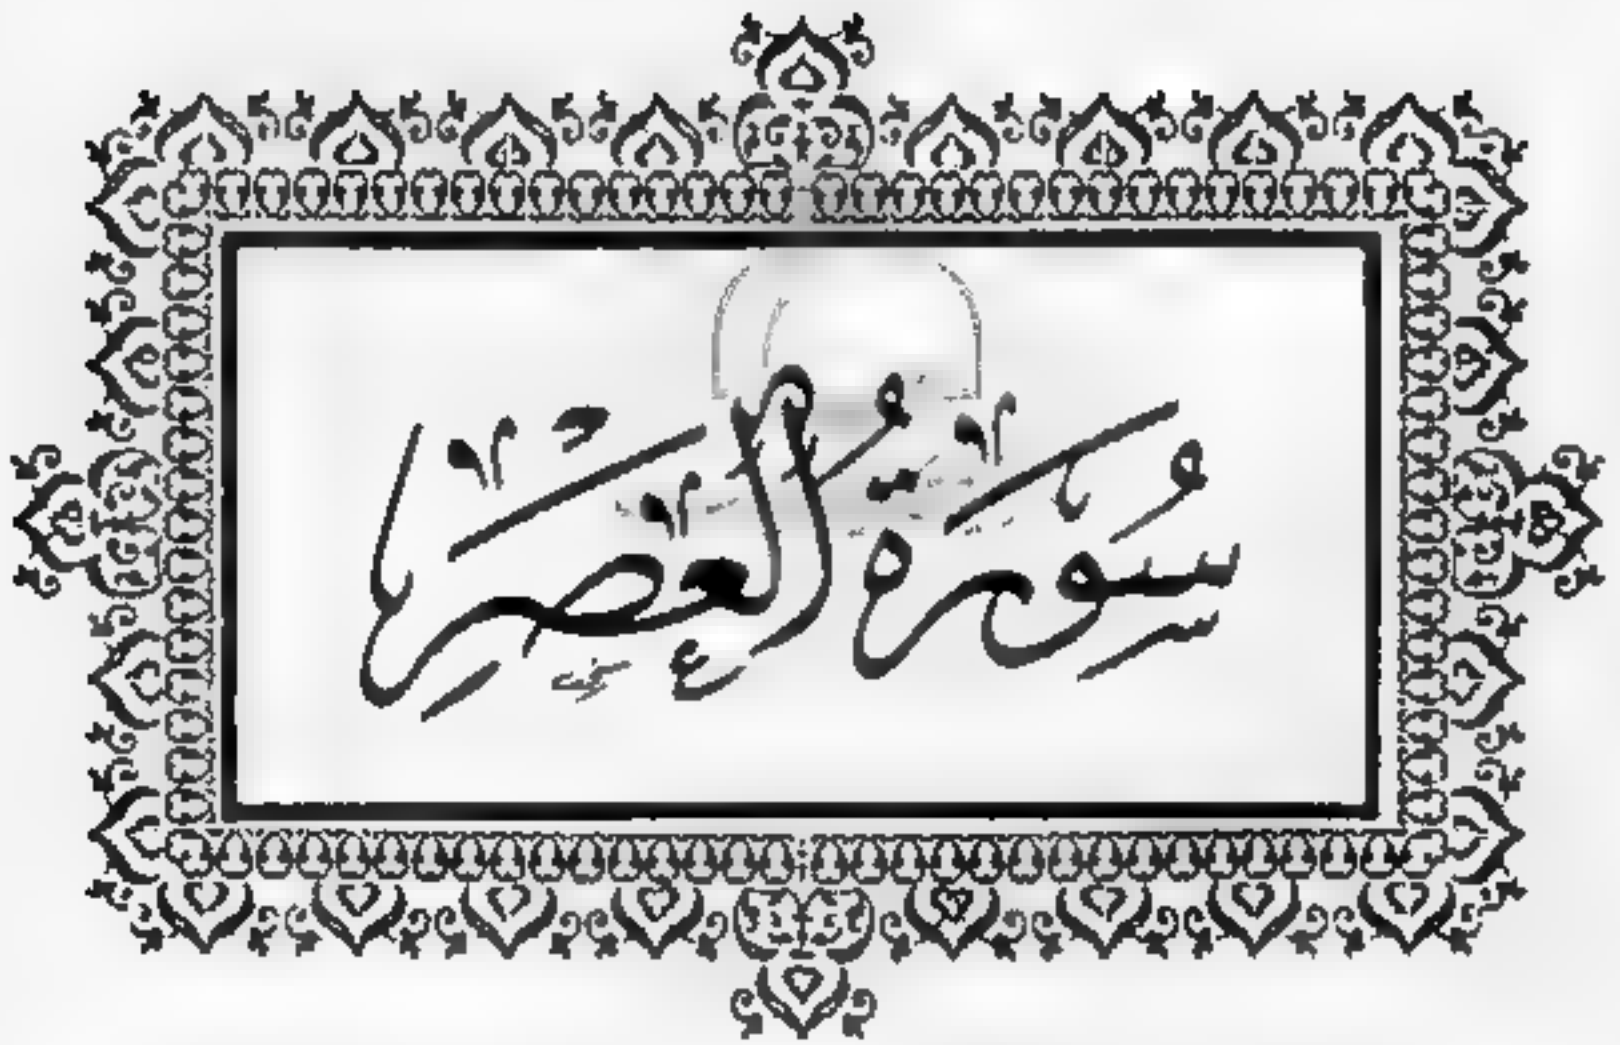 سُورَةُ العَصْرِ